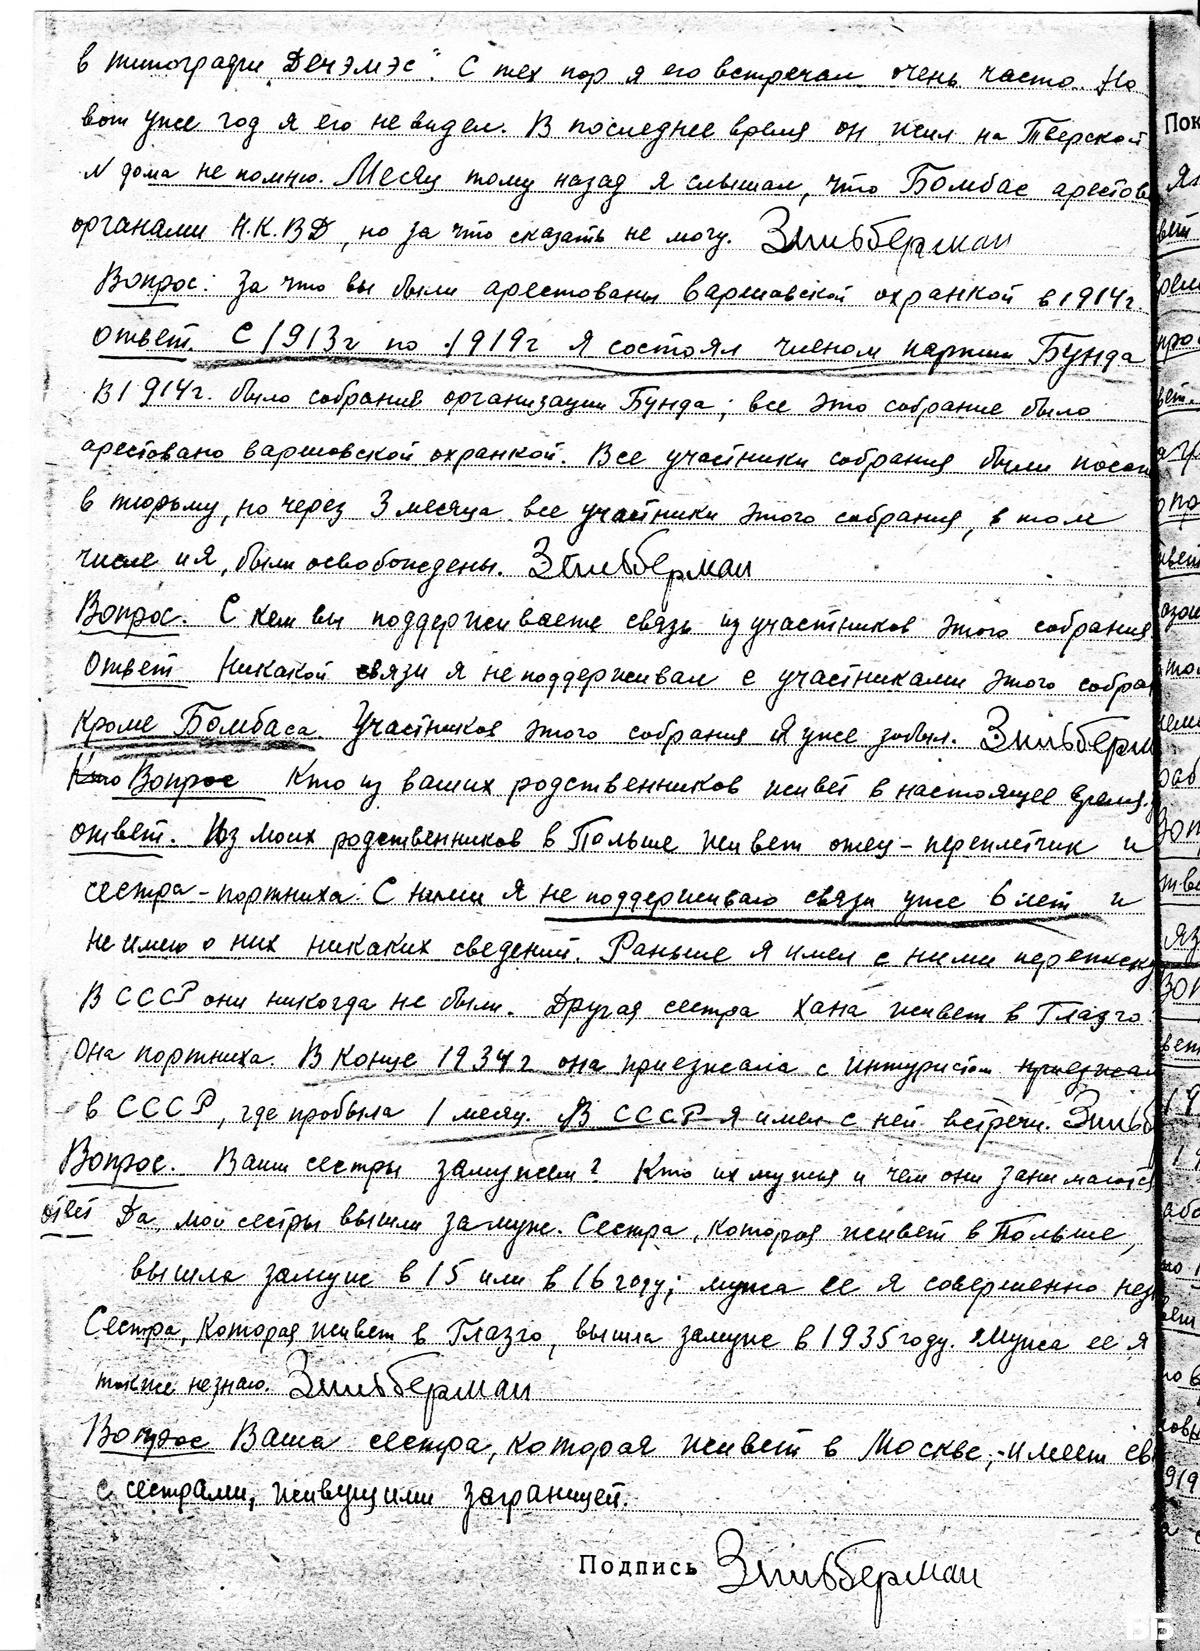 в типографии „Дечэмэс“. С тех пор я его встречал очень часто. Но
вот уже год я его не видел. В последнее время он жил на Тверской
N дома не помню. Месяц тому назад я слышал, что Бомбас арестов
органами Н.К.ВД, но за что сказать не могу. Зильберман
Вопрос: За что вы были арестованы варшовской охранкой в 1914г.
ответ. С 1913г по 1919г я состоял членом партии Бунда
В 1914г. было собрание организации Бунда; все это собрание было
арестовано варшовской охранкой. Все участники собрания были посаж
в тюрьму, но через 3 месяца все участники этого собрания, в том
числе и я, были освобождены. Зильберман
Вопрос. С кем вы поддерживаете связь из участников этого собрания
Ответ Никакой связи я не поддерживал с участниками этого собран
кроме Бомбаса. Участников этого собрания я уже забыл. Зильберм
Кто Вопрос Кто из ваших родственников живет в настоящее время
ответ. Из моих родственников в Польше живет отец - переплетчик и
сестра - портниха. С ними я не поддерживаю связи уже 6 лет и
не имею о них никаких сведений. Раньше я имел с ними переписку
В СССР они никогда не были. Другая сестра Хана живет в Глазго.
Она портниха. В конце 1934г она приезжала с интуристом приезжал
в СССР, где пробыла 1 месяц. В СССР я имел с ней встречи. Зильб
Вопрос. Ваши сестры замужем? Кто их мужья и чем они занимаются
ответ Да, мои сестры вышли замуж. Сестра, которая живет в Польше,
вышла замуж в 15 или в 16 году; мужа ее я совершенно незн
Сестра, которая живет в Глазго, вышла замуж в 1935 году. Мужа ее я
также незнаю. Зильберман
Вопрос Ваша сестра, которая живет в Москве, - имеет св
с сестрами, живущими заграницей.
Подпись Зильберман
ББ
Пок